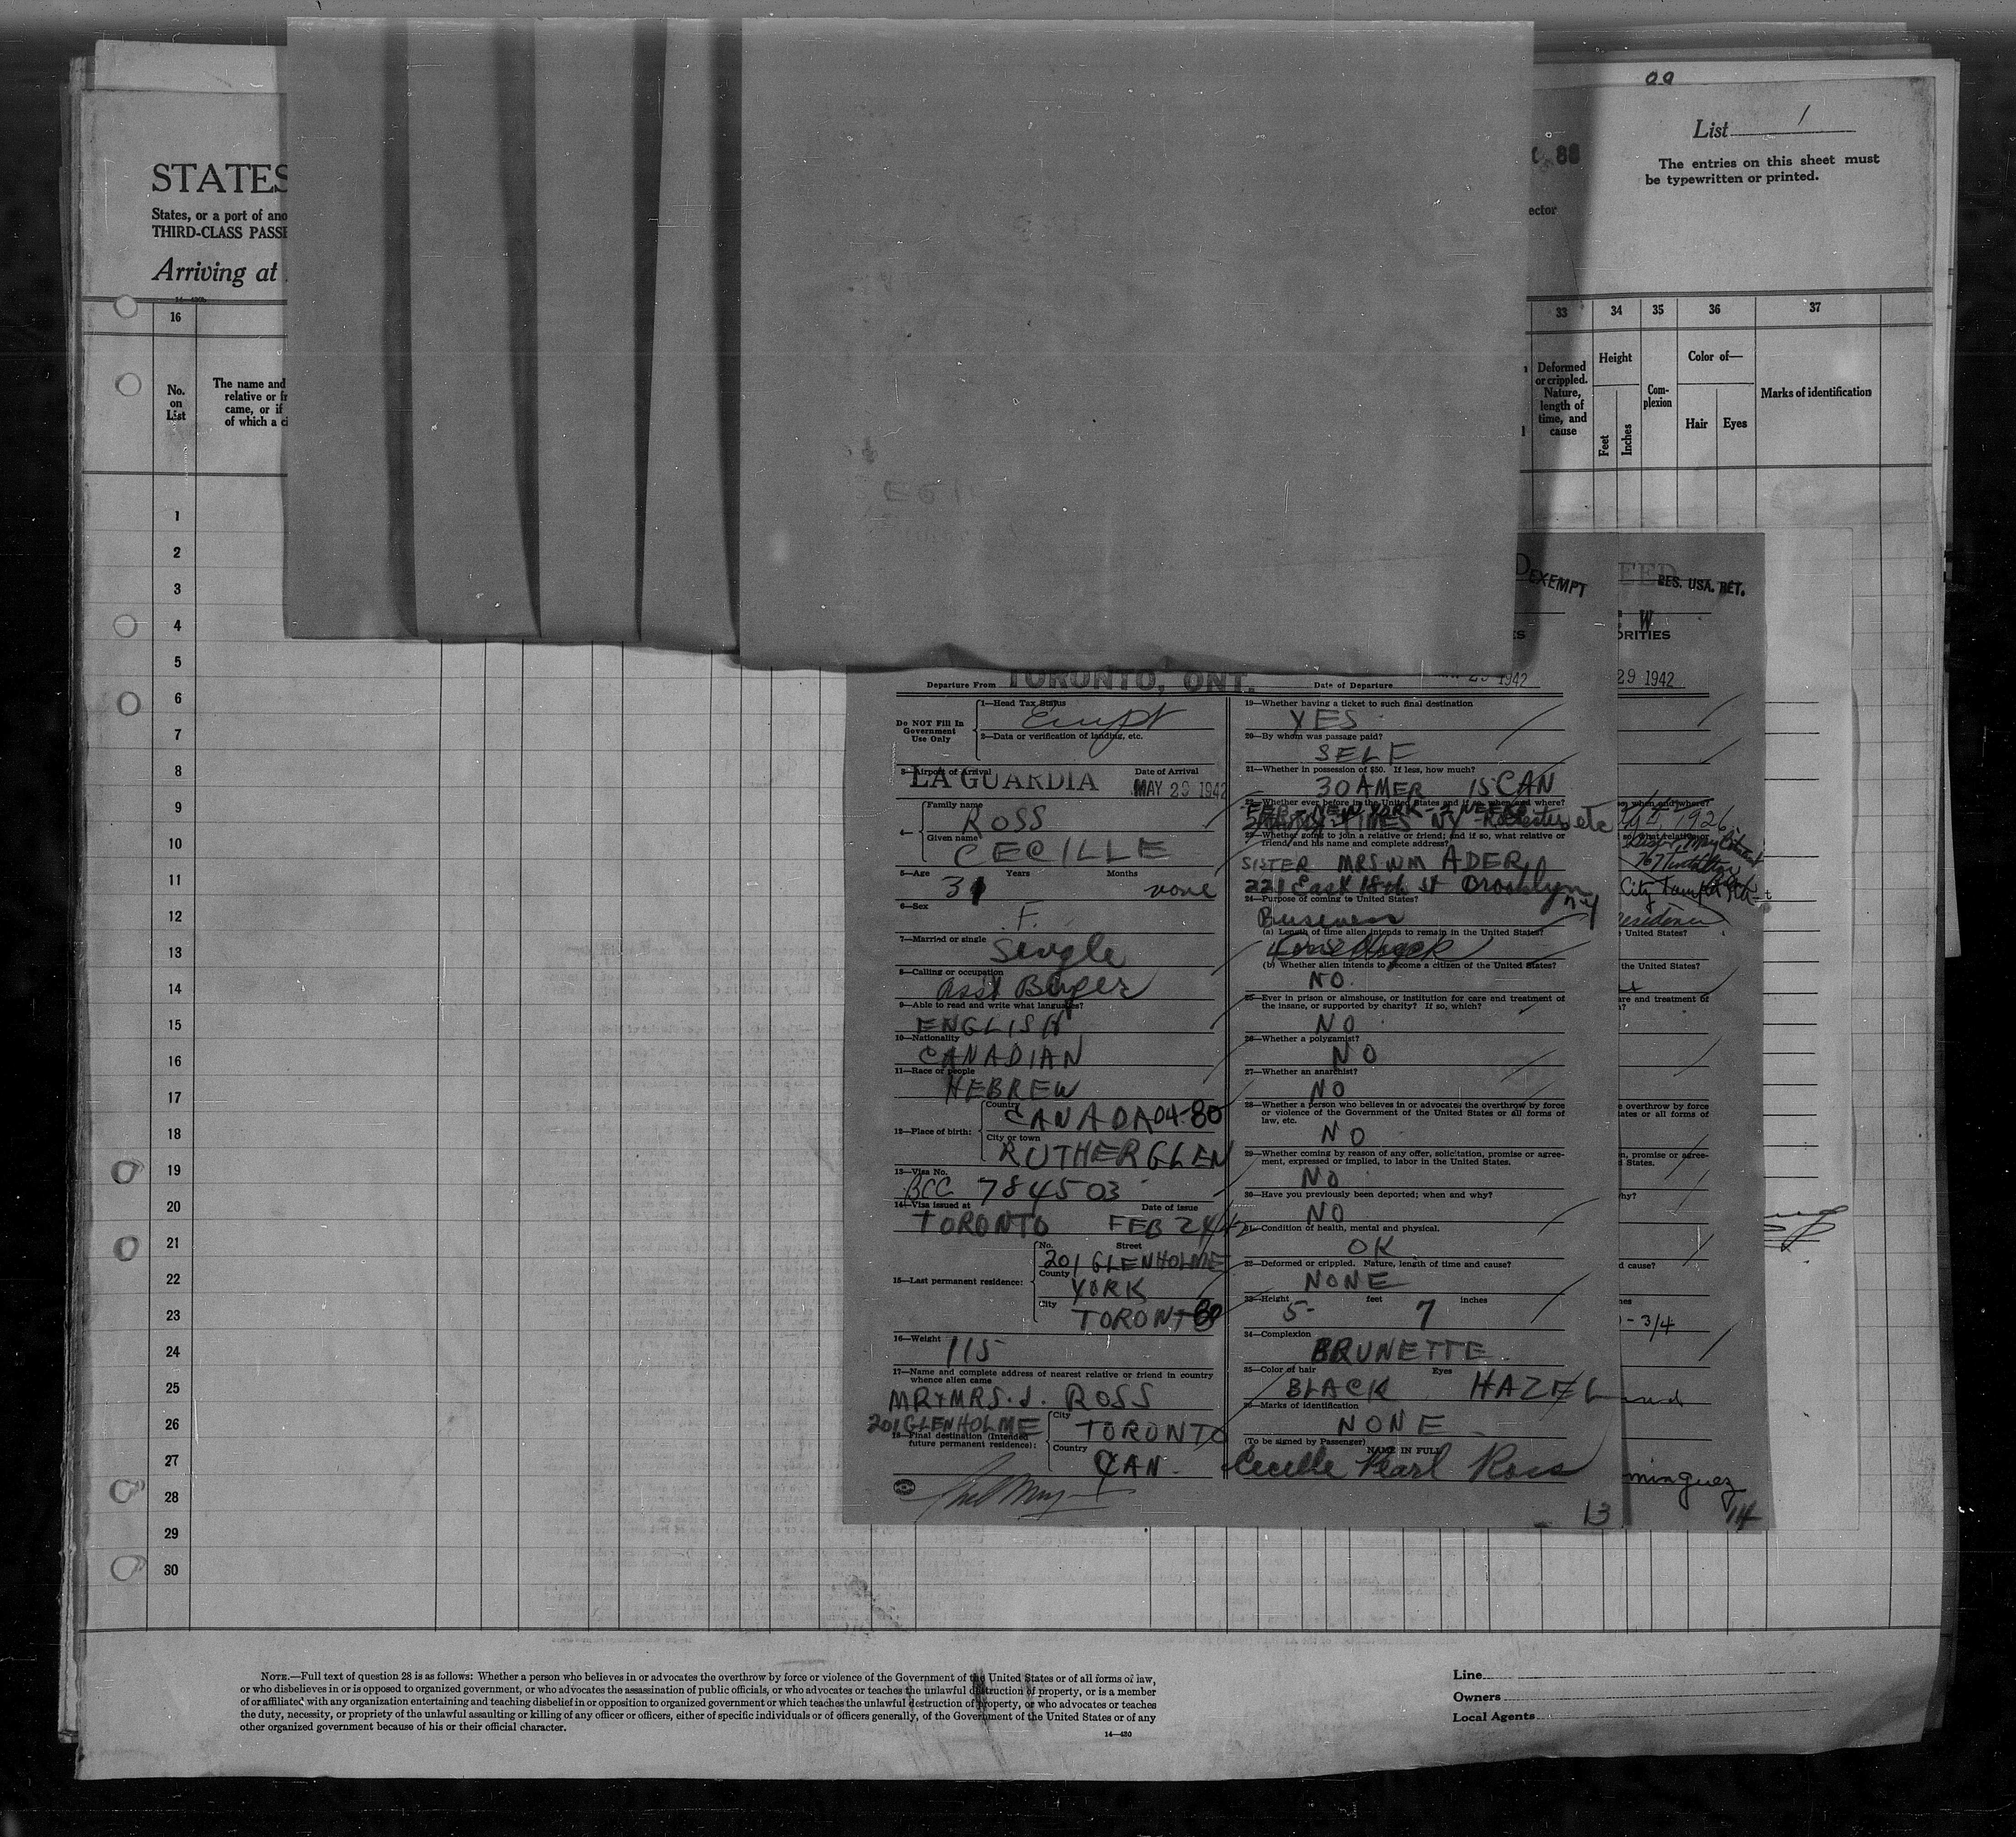 99
List 1
The entries on this sheet must
be typewritten or printed.
88
ector
STATES
States, or a port of ano
THIRD-CLASS PASSE
Arriving at
16
33
34
35
36
37
No.
on
List
The name and
relative or fr
came, or if
of which a ci
Deformed
or crippled.
Nature,
length of
time, and
cause
Height
Feet
Inches
Com-
plexion
Color of—
Hair
Eyes
Marks of identification
1
2
3
4
5
6
7
8
9
10
11
12
13
14
15
16
17
18
19
20
21
22
23
24
25
26
27
28
29
30
EXEMPT
Departure From TORONTO, ONT.
Date of Departure 29 1942
Do NOT Fill In
Government
Use Only
1—Head Tax Status
2—Data or verification of landing, etc.
3—Airport of Arrival LA GUARDIA
Date of Arrival MAY 29 1942
4—
Family name ROSS
Given name CECILLE
5—Age 31 Years Months none
6—Sex F.
7—Married or single Single
8—Calling or occupation Asst Buyer
9—Able to read and write what languages?
ENGLISH
10—Nationality
CANADIAN
11—Race or people
HEBREW
12—Place of birth:
Country CANADA 04-80
City or town
RUTHERGLEN
13—Visa No.
BCC 784503
14—Visa issued at Date of issue
TORONTO FEB 24/42
15—Last permanent residence:
No. Street
201 GLENHOLME
County
YORK
City
TORONTO
16—Weight 115
17—Name and complete address of nearest relative or friend in country
whence alien came
MR & MRS. J. ROSS
201 GLENHOLME
18—Final destination (Intended
future permanent residence):
City TORONTO
Country CAN.
19—Whether having a ticket to such final destination
YES
20—By whom was passage paid?
SELF
21—Whether in possession of $50. If less, how much?
30 AMER 15 CAN
22—Whether ever before in the United States and if so, when and where?
NEW YORK - 2 WEEKS
TIMES NY Rochester etc
23—Whether going to join a relative or friend; and if so, what relative or
friend, and his name and complete address?
SISTER MRS WM ADER
221 East 18th St Brooklyn
NY
24—Purpose of coming to United States?
Business
(a) Length of time alien intends to remain in the United States?
(b) Whether alien intends to become a citizen of the United States?
NO.
25—Ever in prison or almshouse, or institution for care and treatment of
the insane, or supported by charity? If so, which?
NO
26—Whether a polygamist?
NO
27—Whether an anarchist?
NO
28—Whether a person who believes in or advocates the overthrow by force
or violence of the Government of the United States or all forms of
law, etc.
NO
29—Whether coming by reason of any offer, solicitation, promise or agree-
ment, expressed or implied, to labor in the United States.
NO
30—Have you previously been deported; when and why?
NO
31—Condition of health, mental and physical.
OK
32—Deformed or crippled. Nature, length of time and cause?
NONE
33—Height 5 feet 7 inches
34—Complexion
BRUNETTE
35—Color of hair Eyes
BLACK HAZEL
36—Marks of identification
NONE
(To be signed by Passenger) NAME IN FULL
Cecille Pearl Ross
13
RES. USA. RET.
W
ORITIES
29 1942
so, when and where?
1926
so, what relative or
767
City Tampa
Residence
United States?
the United States?
are and treatment of
?
e overthrow by force
ates or all forms of
n, promise or agree-
d States.
hy?
d cause?
hes
- 3/4
minguez
14
NOTE.—Full text of question 28 is as follows: Whether a person who believes in or advocates the overthrow by force or violence of the Government of the United States or of all forms of law,
or who disbelieves in or is opposed to organized government, or who advocates the assassination of public officials, or who advocates or teaches the unlawful destruction of property, or is a member
of or affiliated with any organization entertaining and teaching disbelief in or opposition to organized government or which teaches the unlawful destruction of property, or who advocates or teaches
the duty, necessity, or propriety of the unlawful assaulting or killing of any officer or officers, either of specific individuals or of officers generally, of the Government of the United States or of any
other organized government because of his or their official character.
14—430
Line
Owners
Local Agents